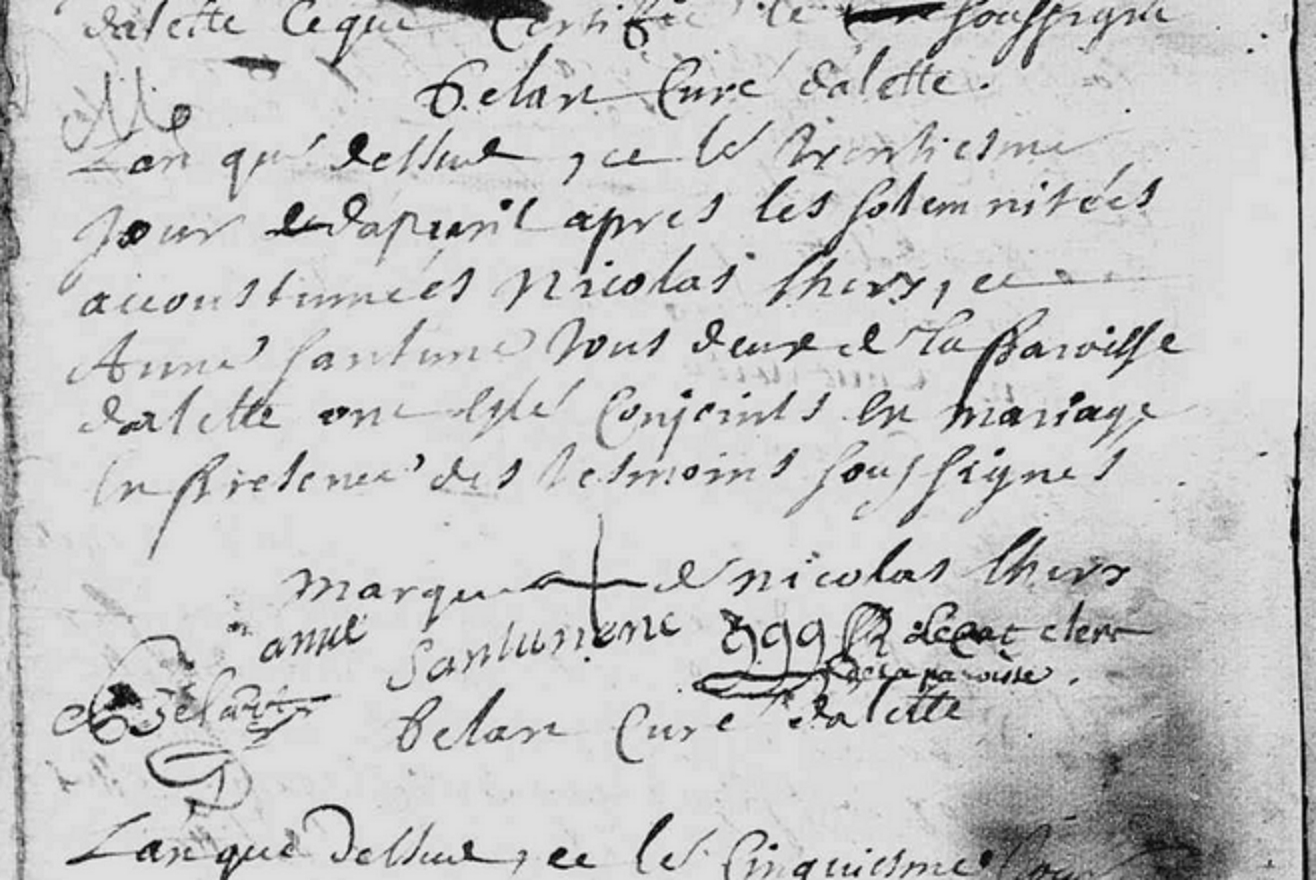 dalette Ceque Certiffie le soussigné
Belart Curé dalette.
M
Lan que dessus, et le trentiesme
Jour dapvril apres les solemnitées
accoustumées Nicolas et
Anne Santune tous deux de la Paroisse
dalette ont esté Conjoints en mariage
En presence des tesmoins soussignes
marque de nicolas
anne Santunene clerc
de la paroisse.
Belart
Belart Curé dalette
Lan que dessus, et le Cinquiesme Jour